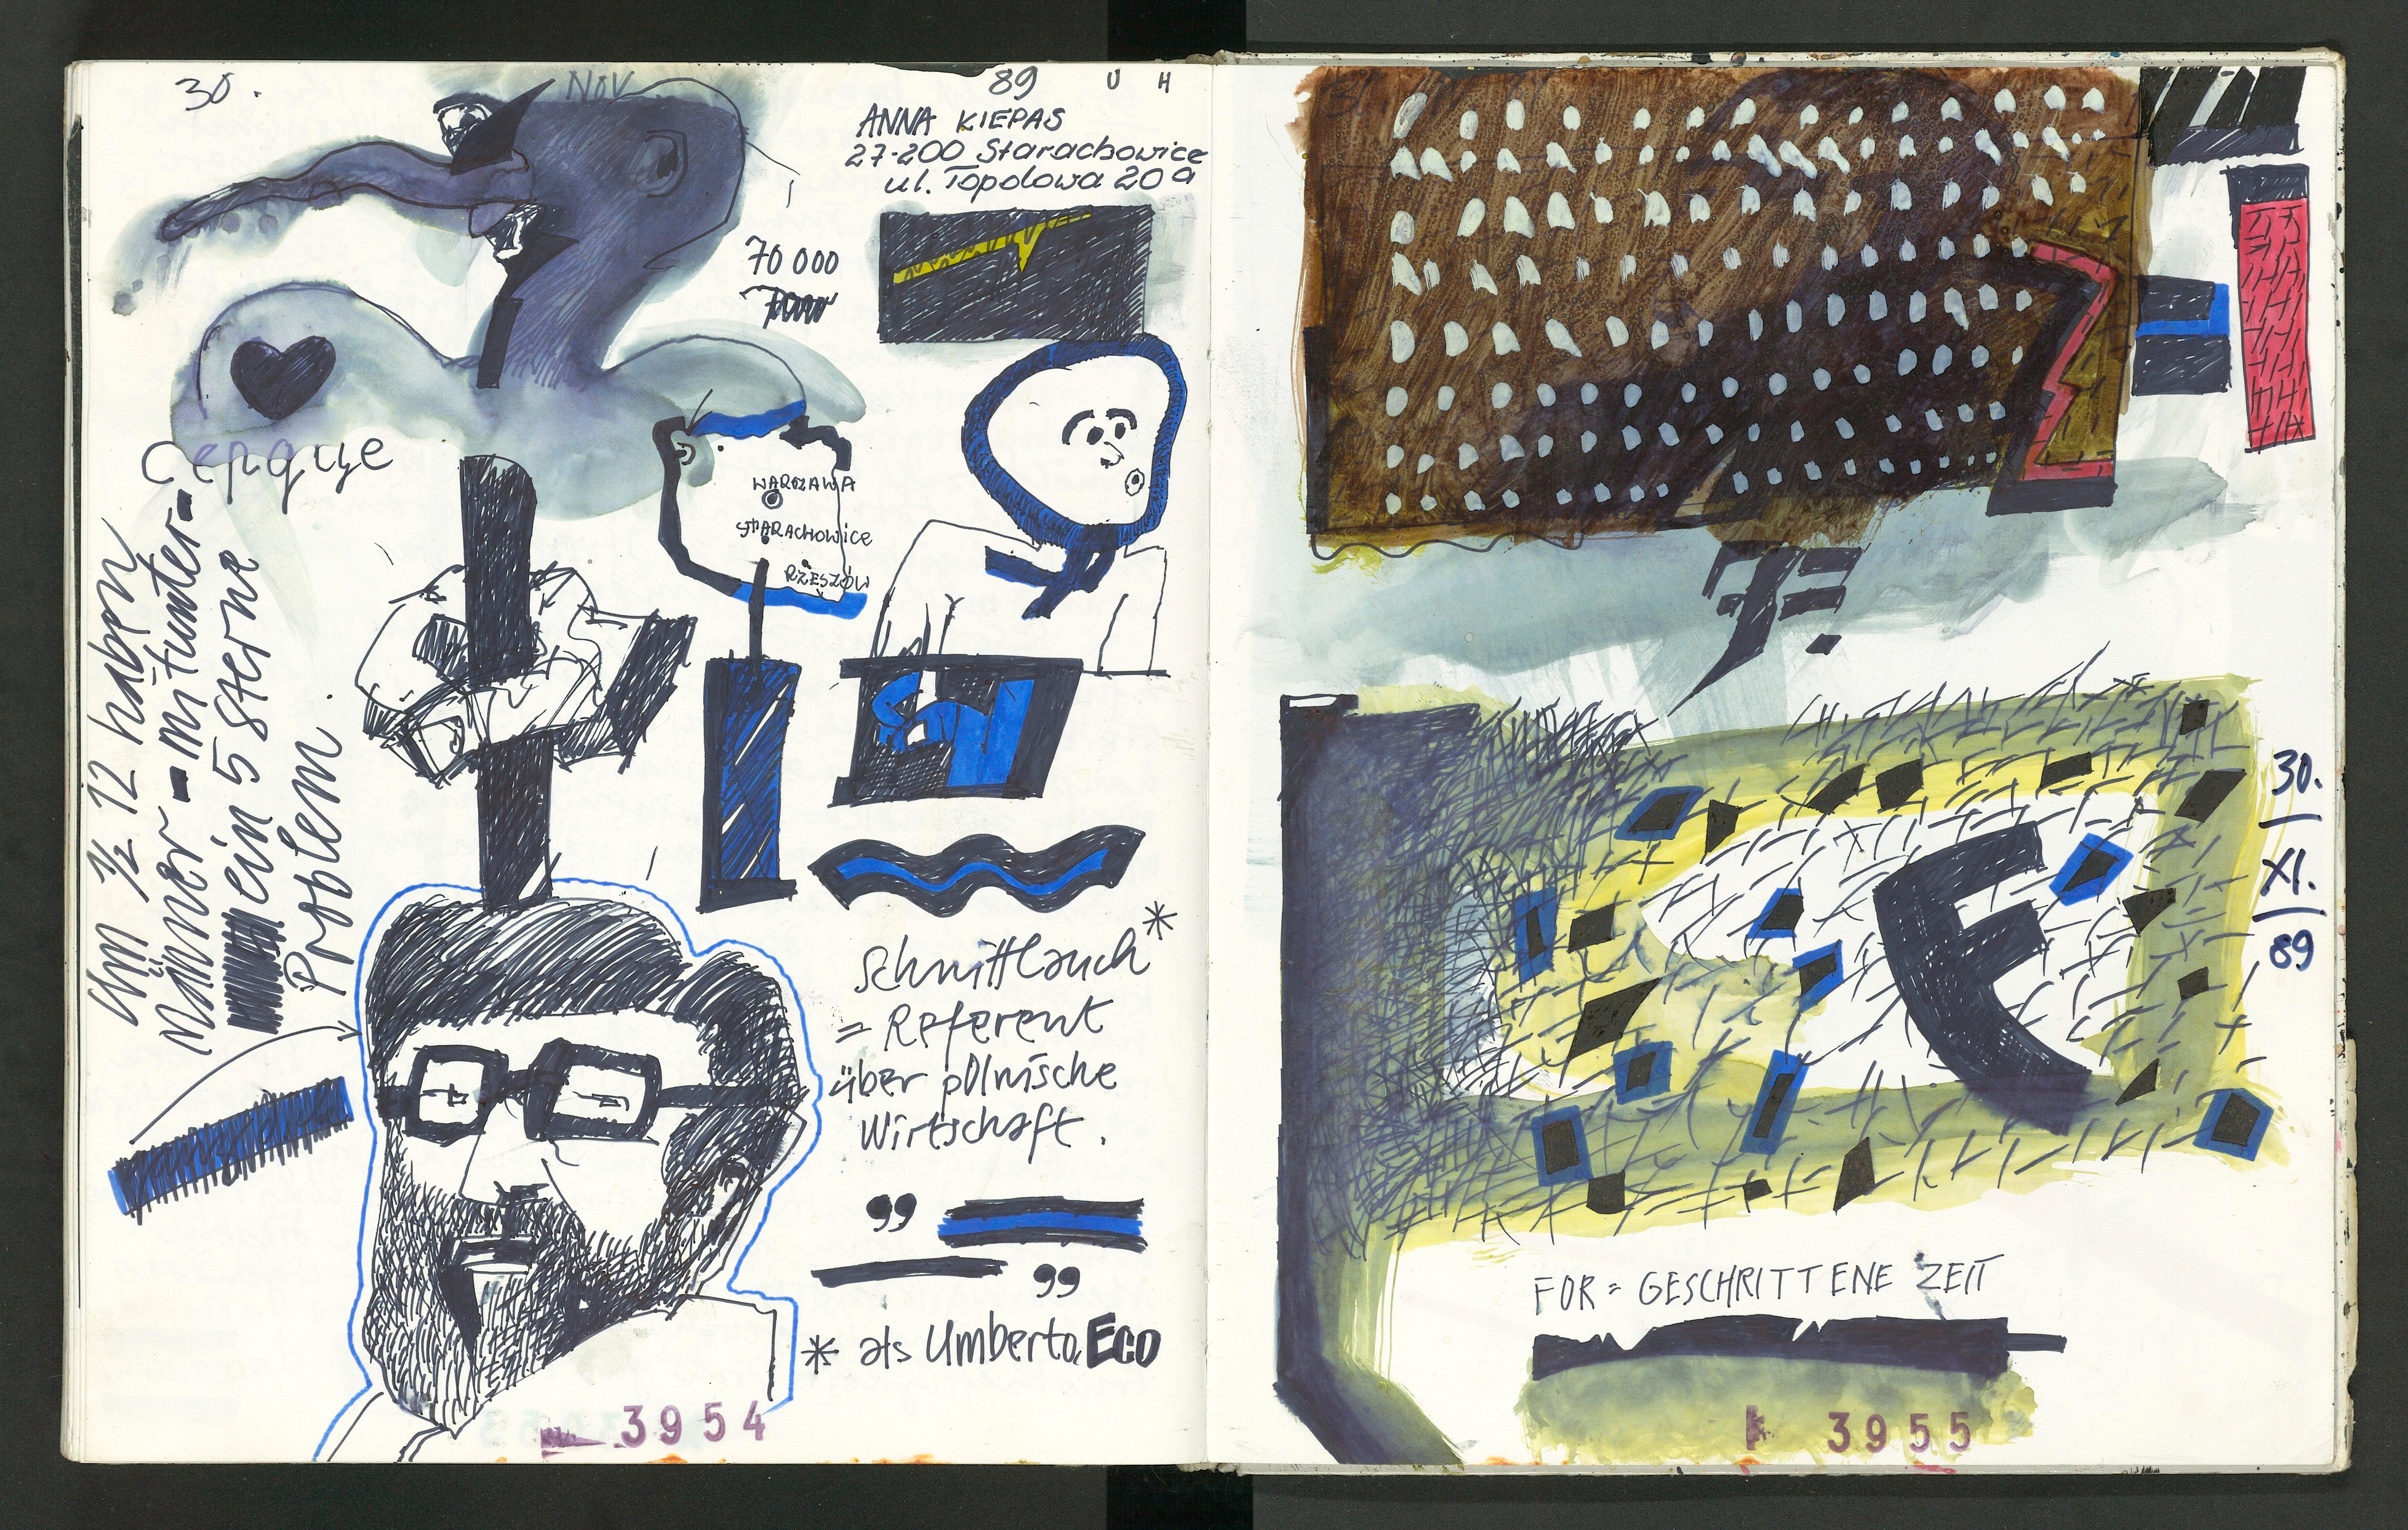 30. NOV 89 U H
ANNA KIEPAS
27-200 Starachowice
ul. Topolowa 20 a
70 000
сердце
WARSZAWA
STARACHOWICE
RZESZÓW
Um ½ 12 haben
Männer - mitunter -
ein 5 Sterne
Problem.
Schnittlauch*
= Referent
über polnische
Wirtschaft.
"
"
* als Umberto ECO
3954
30.
XI.
89
F
FOR = GESCHRITTENE ZEIT
3955